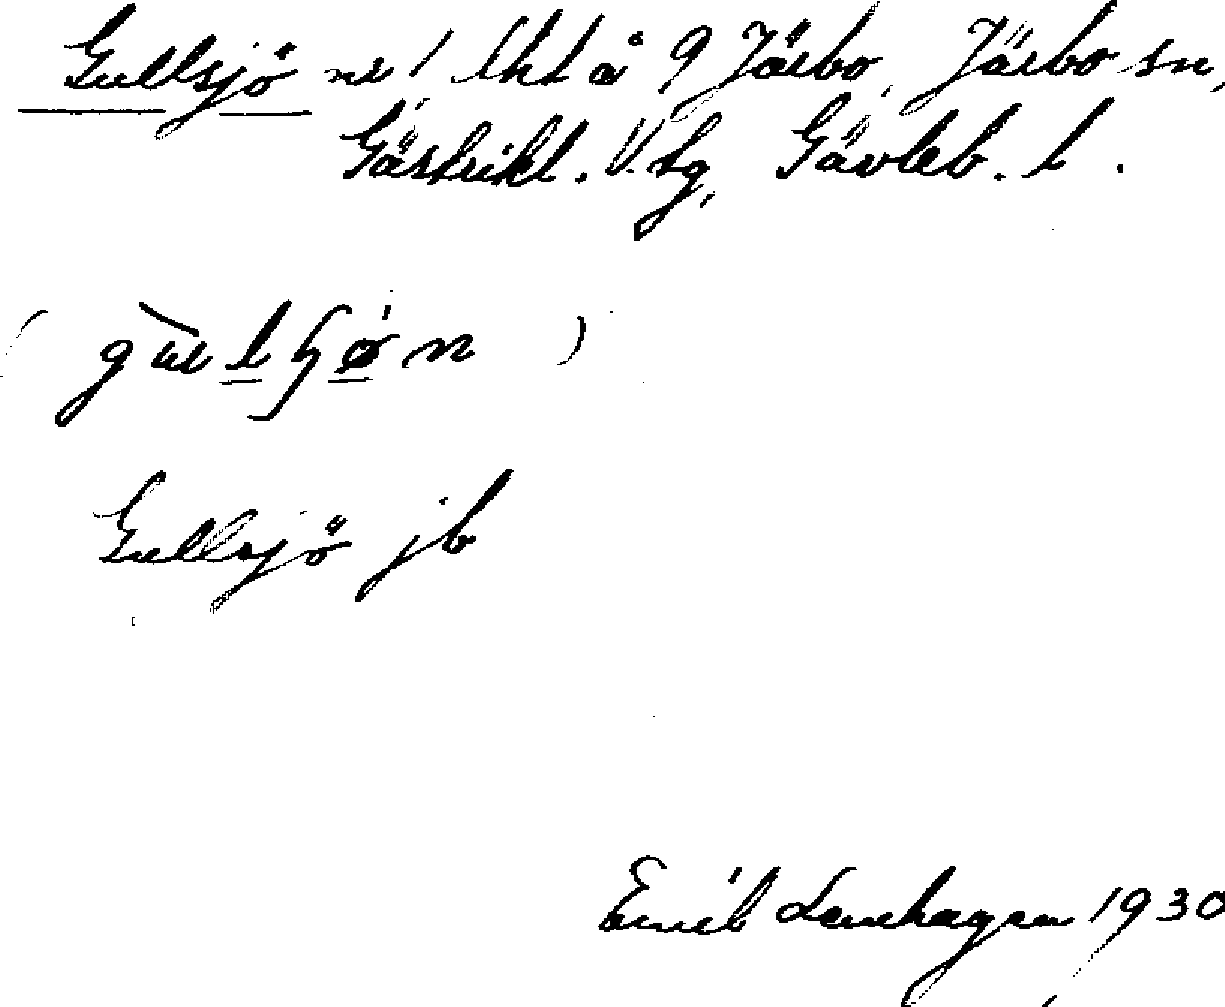 Gullsjö nr 1, lht å 9 Järbo, Järbo sn,
Gästrikl. V. tg, Gävleb. l.
Gullsjö jb
Emil Lenhagen 1930